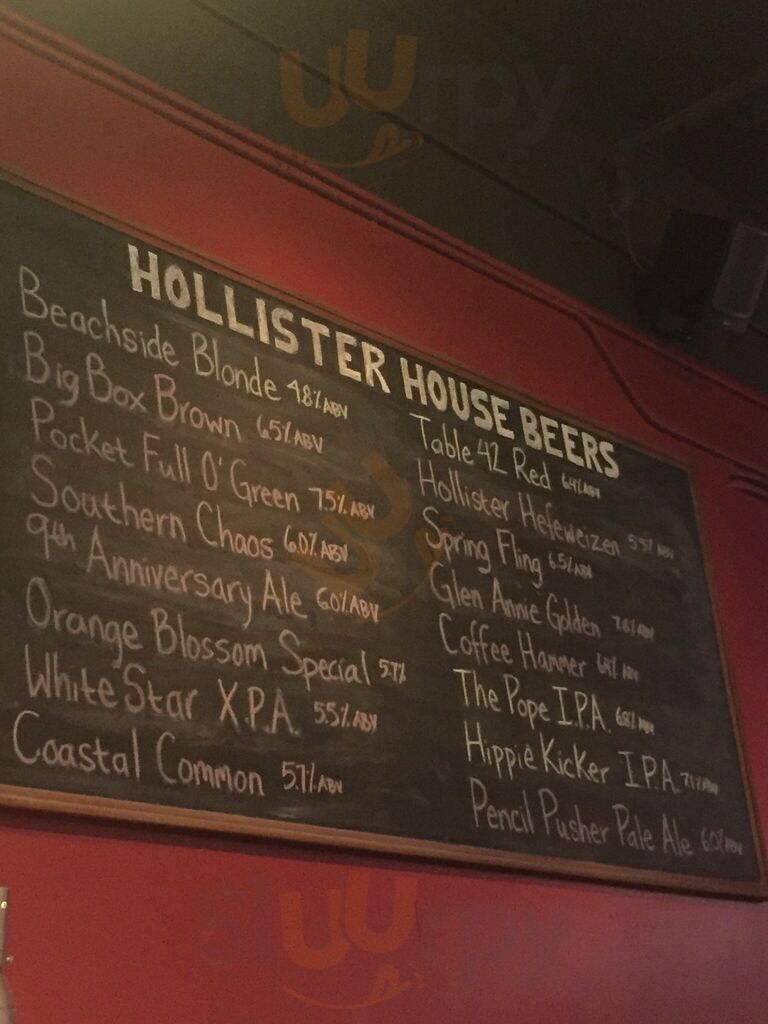 HOLLISTER HOUSE BEERS
Beachside Blonde 4.8% ABV
Big Box Brown 6.5% ABV
Pocket Full O' Green 7.5% ABV
Southern Chaos 6.0% ABV
9th Anniversary Ale 6.0% ABV
Orange Blossom Special 5.7%
White Star X.P.A. 5.5% ABV
Coastal Common 5.7% ABV
Table 42 Red 6.4% ABV
Hollister Hefeweizen 5.5% ABV
Spring Fling 6.5% ABV
Glen Annie Golden 7.8% ABV
Coffee Hammer ABV
The Pope I.P.A. 6.8% ABV
Hippie Kicker I.P.A. 7.1% ABV
Pencil Pusher Pale Ale 6.0% ABV
sluurpy